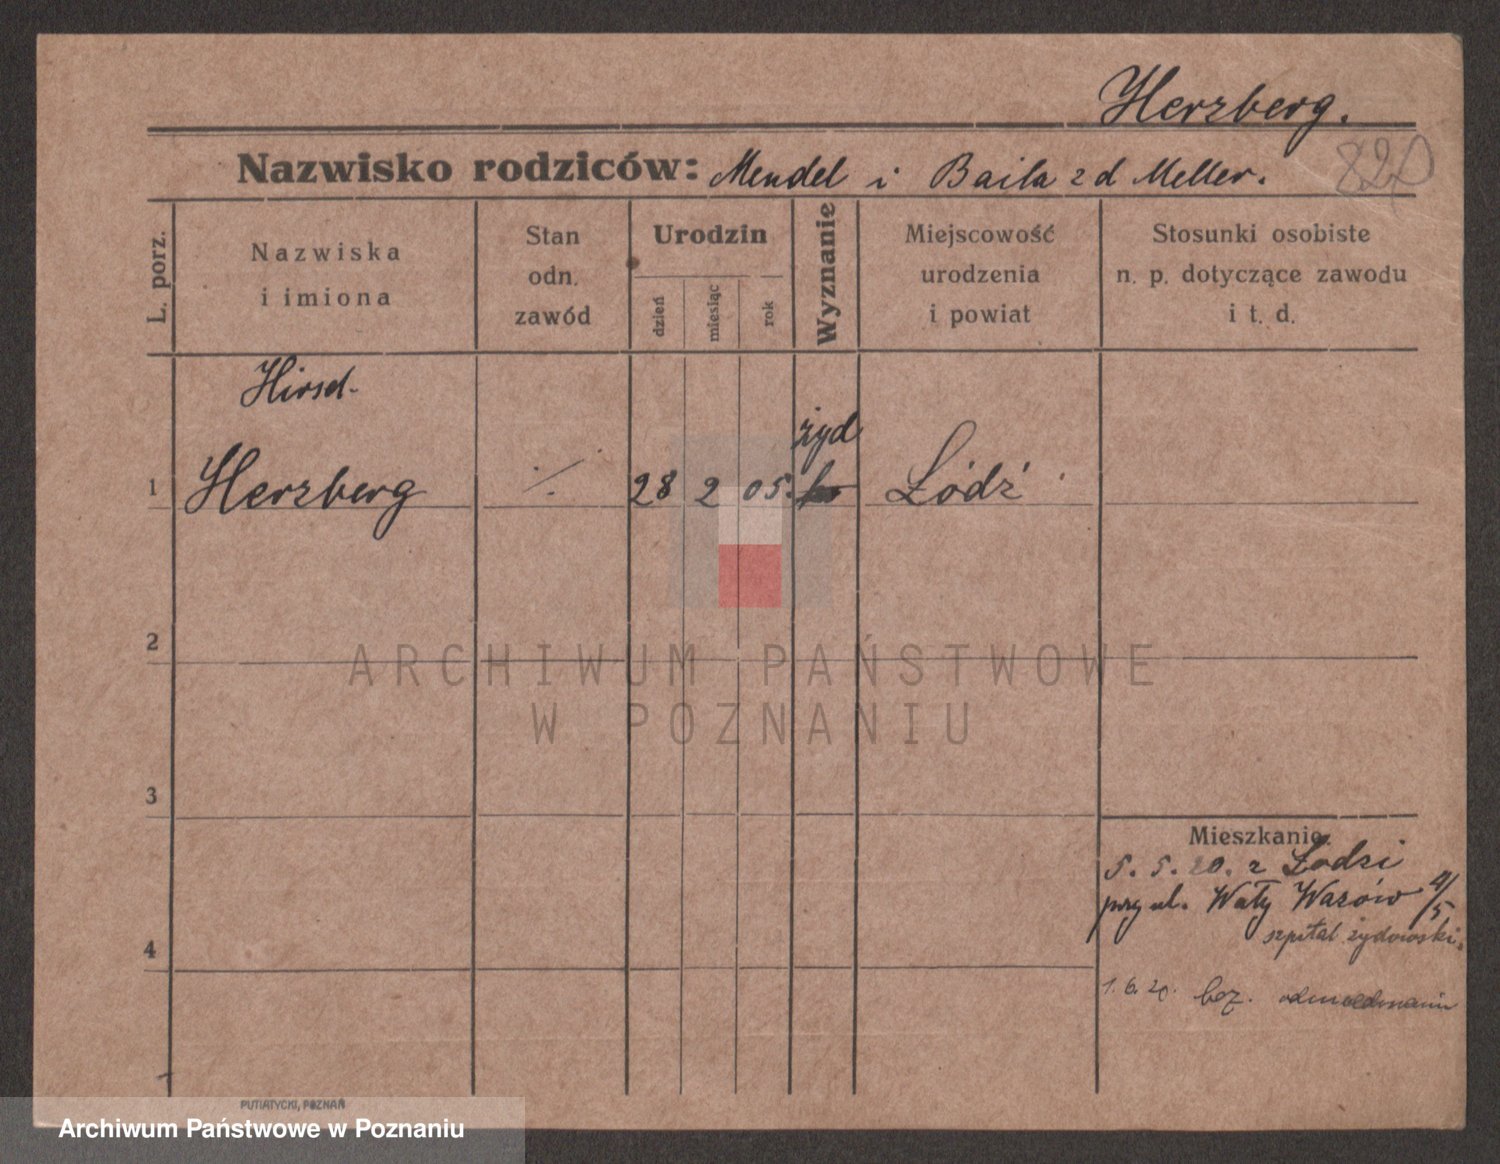 Herzberg.
Nazwisko rodziców: Mendel i Baila z d Meller.
820
L. porz.
Nazwiska
i imiona
Stan
odn.
zawód
Urodzin
dzień
miesiąc
rok
Wyznanie
Miejscowość
urodzenia
i powiat
Stosunki osobiste
n. p. dotyczące zawodu
i t. d.
Hirsch
żyd
1 Herzberg ./. 28 2 05. Łódź
2
ARCHIWUM PAŃSTWOWE
W POZNANIU
3
Mieszkanie.
5. 5. 20. z Łodzi
przy ul. Wały Wazów 4/5
szpital żydowski.
4
1. 6. 20. bez. odmeldowania
PUTIATYCKI, POZNAŃ
Archiwum Państwowe w Poznaniu